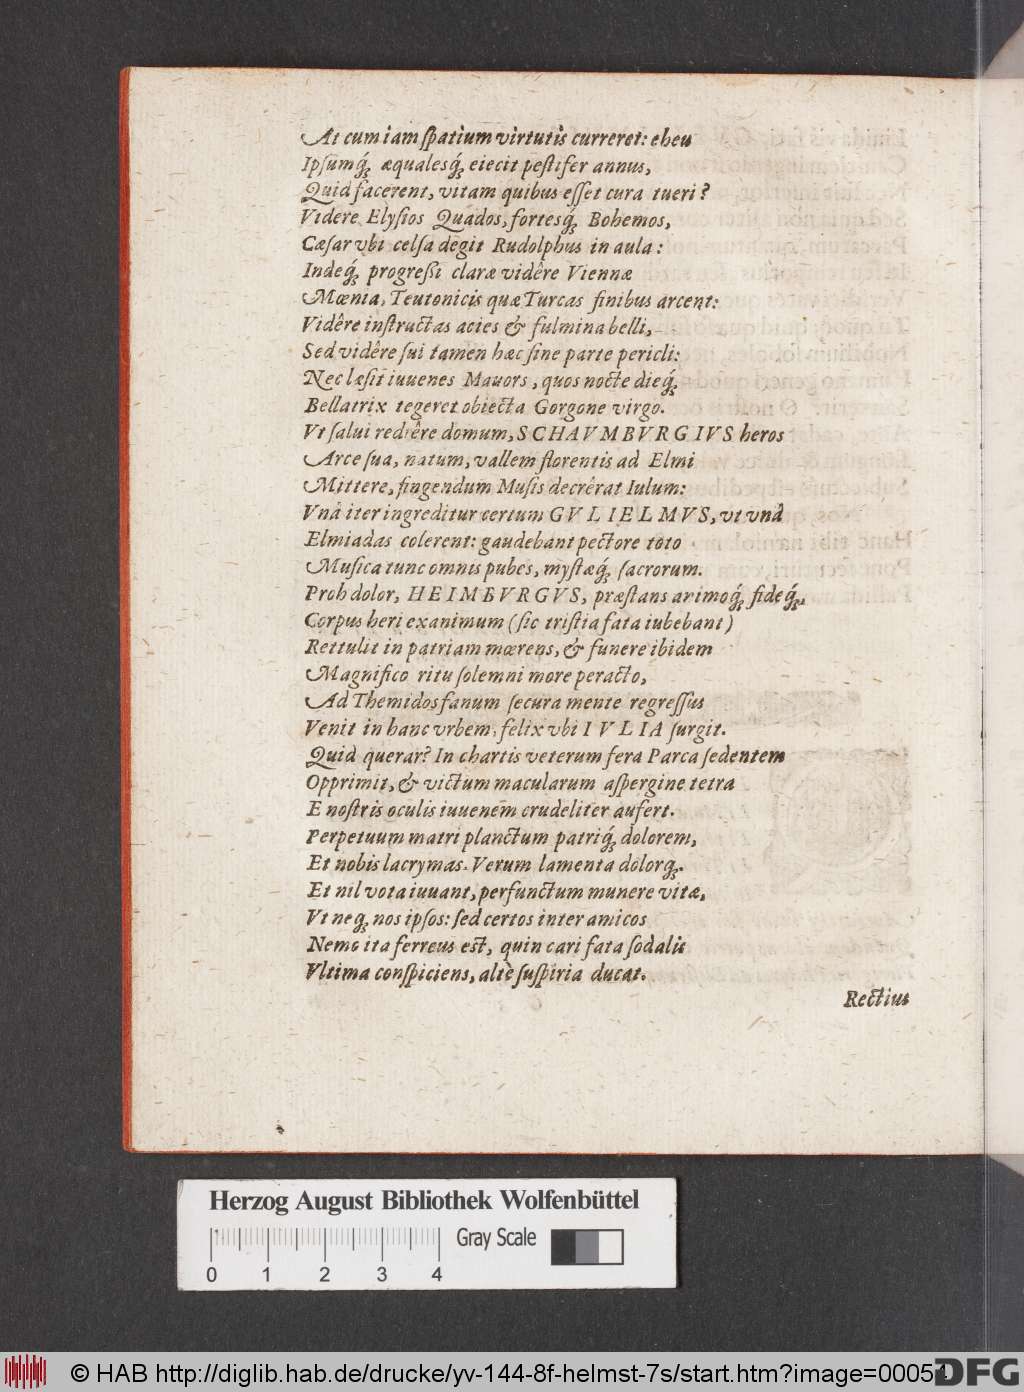 At cum iam ſpatium virtutis curreret: eheu
Ipſumq́ꝫ æqualesq́ꝫ eiecit peſtifer annus,
Quid facerent, vitam quibus eſſet cura tueri?
Videre Elyſios Quados, fortesq́ꝫ Bohemos,
Cæſar vbi celſa degit Rudolphus in aula:
Indeq́ꝫ progreßi claræ vidêre Viennæ
Mœnia, Teutonicis quæ Turcas finibus arcent:
Vidêre inſtructas acies & fulmina belli,
Sed vidêre ſui tamen hæc ſine parte pericli:
Nec læſit iuuenes Mavors, quos nocte dieq́ꝫ
Bellatrix tegeret obiecta Gorgone virgo.
Vt ſalui rediêre domum, SCHAVMBVRGIVS heros
Arce ſua, natum, vallem florentis ad Elmi
Mittere, fingendum Muſis decrêrat Iulum:
Vnà iter ingreditur certum GVLIELMVS, vt vnà
Elmiadas colerent: gaudebant pectore toto
Muſica tunc omnis pubes, myſtæq́ꝫ ſacrorum.
Proh dolor, HEIMBVRGVS, præſtans animoq́ꝫ fideq́ꝫ,
Corpus heri exanimum (ſic triſtia fata iubebant)
Rettulit in patriam mœrens, & funere ibidem
Magnifico ritu ſolemni more peracto,
Ad Themidos fanum ſecura mente regreſſus
Venit in hanc vrbem, felix vbi IVLIA ſurgit.
Quid querar? In chartis veterum fera Parca ſedentem
Opprimit, & victum macularum aſpergine tetra
E noſtris oculis iuuenem crudeliter aufert.
Perpetuum matri planctum patriq́ꝫ dolorem,
Et nobis lacrymas. Verum lamenta dolorqꝫ.
Et nil vota iuuant, perfunctum munere vitæ,
Vt neqꝫ nos ipſos: ſed certos inter amicos
Nemo ita ferreus est, quin cari fata ſodalis
Vltima conſpiciens, altè ſuſpiria ducat.
Rectius
Herzog August Bibliothek Wolfenbüttel
Gray Scale
0 1 2 3 4
© HAB http://diglib.hab.de/drucke/yv-144-8f-helmst-7s/start.htm?image=00054
DFG